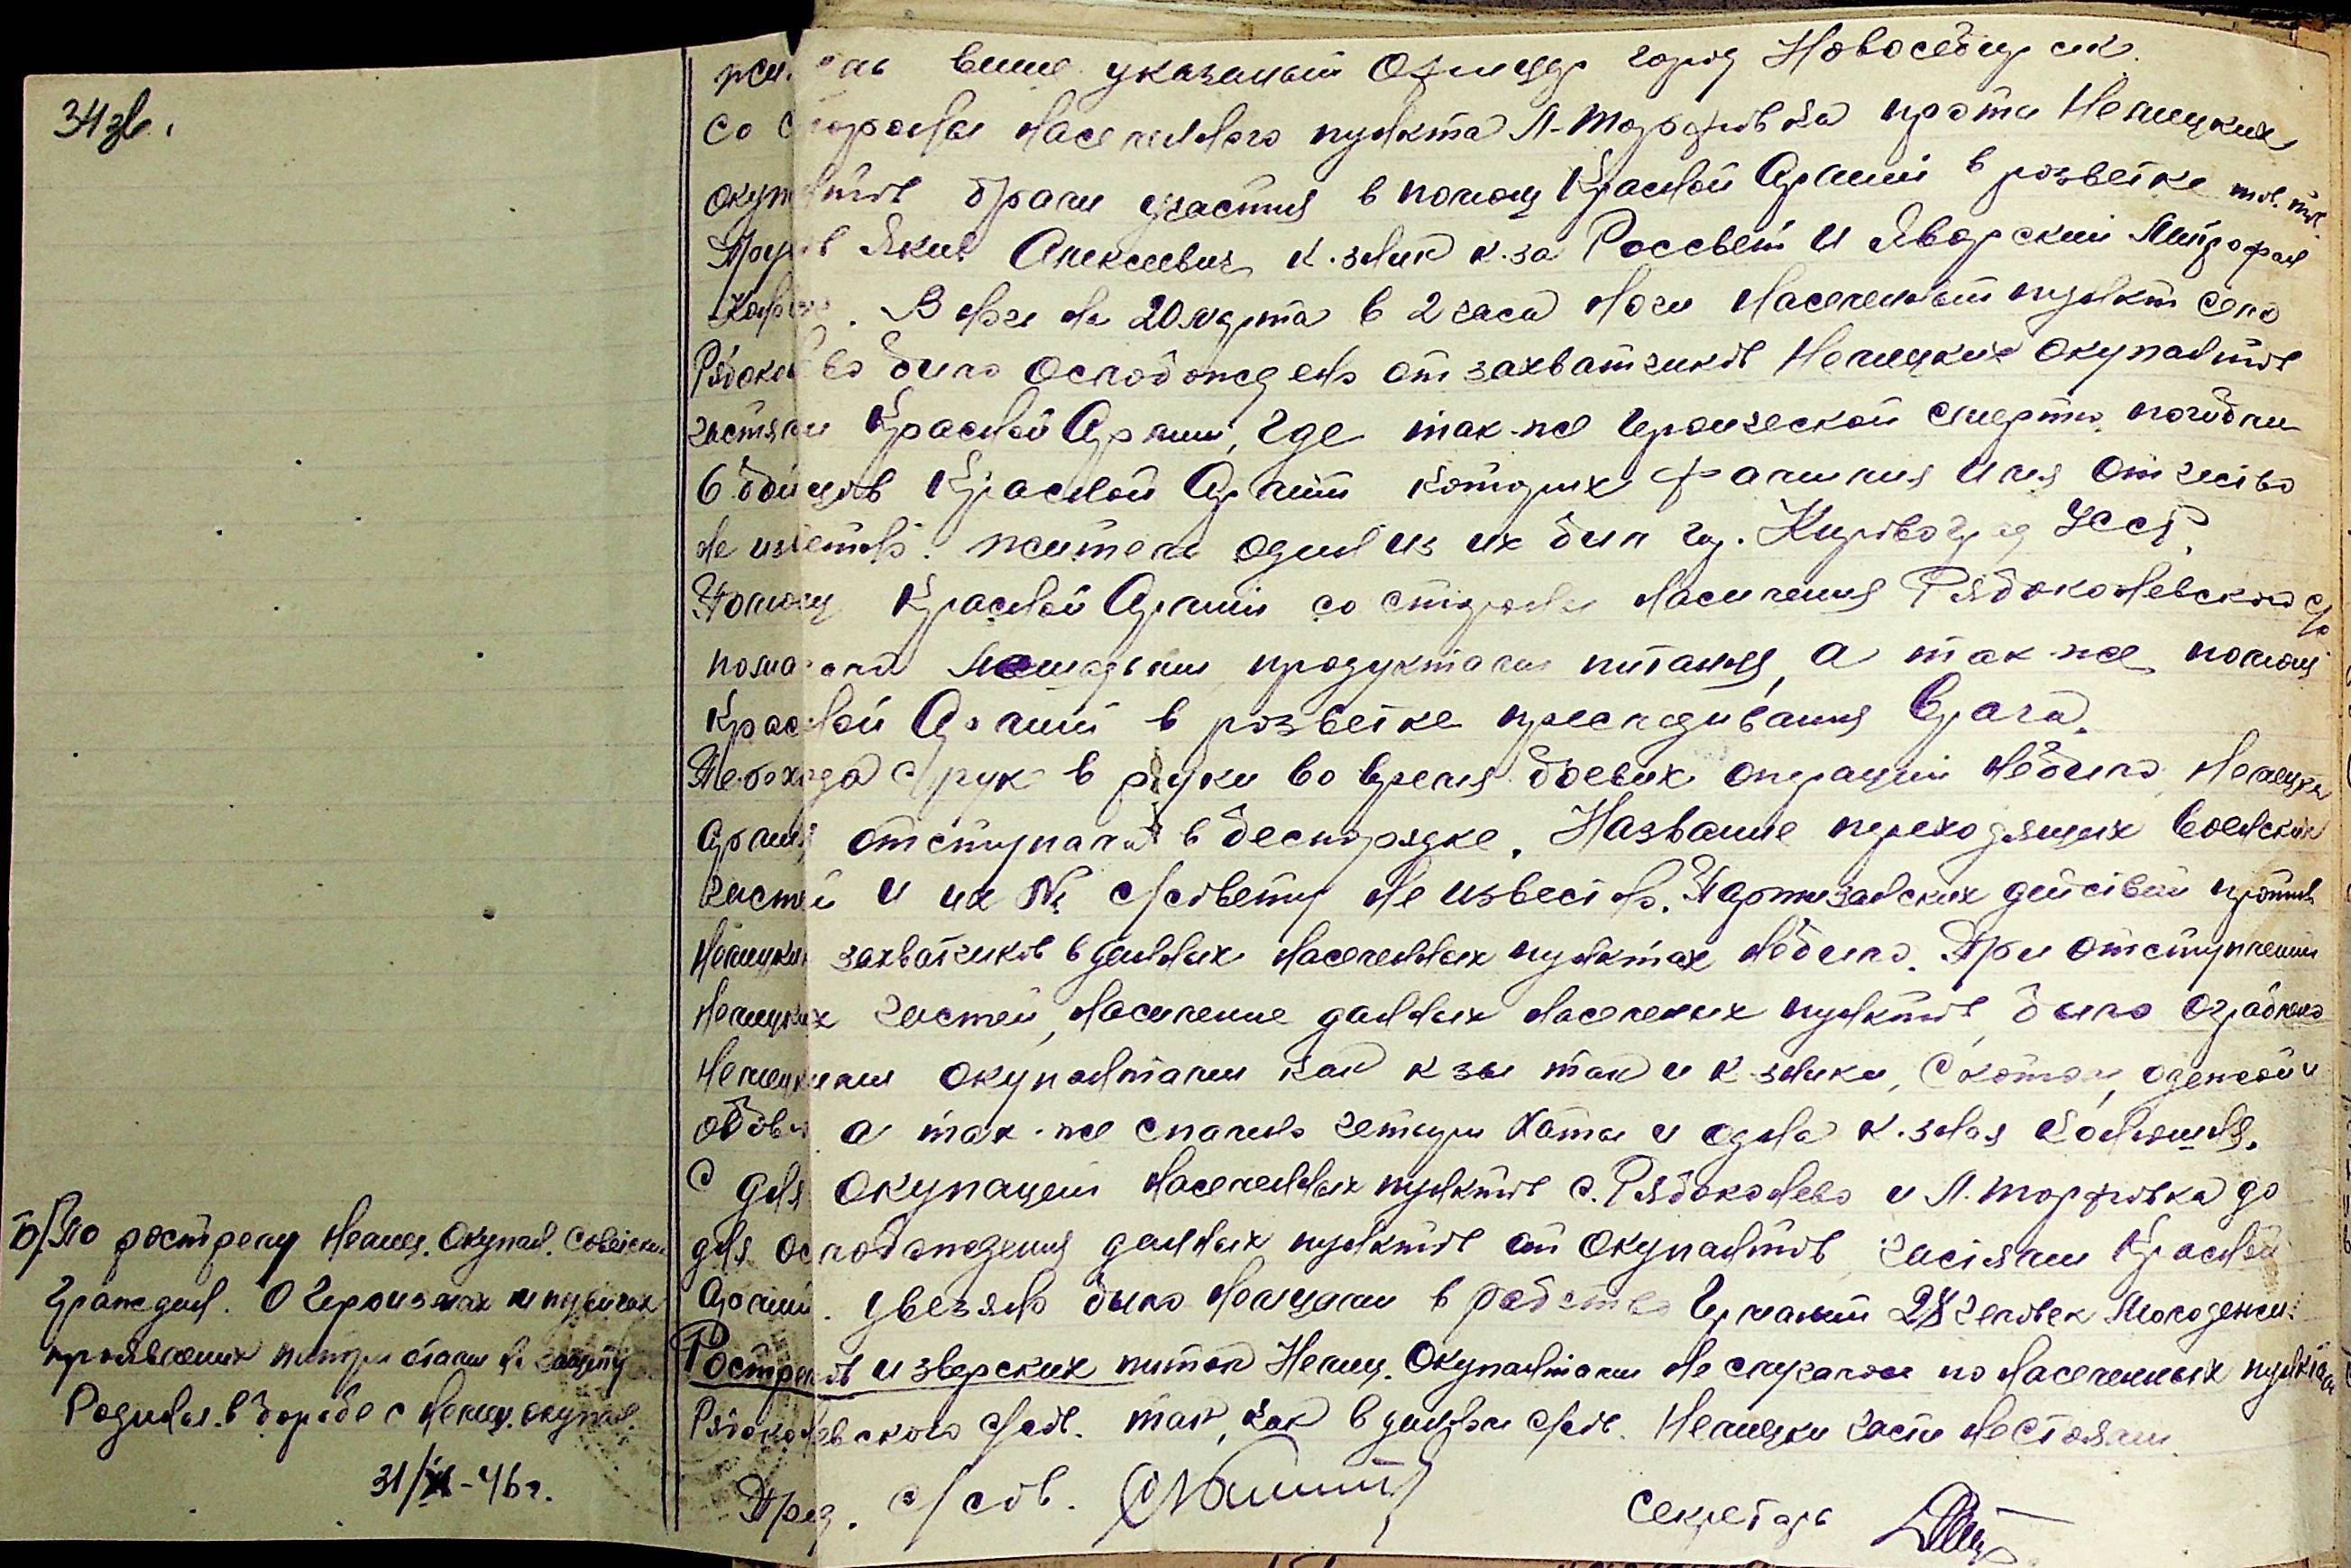 34 зв.
жи ль више указаный Офицер город Новосебирск.
Со стороны населенного пункта Л-Торфовка проти Немецких
окупантов брали участия в помощ Красной Армии в розветке тов. тов.
Яков Алексеевич к.зник к.за Россвет и Яворский Митрофан
. В ночь на 20 марта в 2 часа ночи населенный пункт село
Рябоконево било ослобождено от захватчиков Немецких окупантов
частями Красной Армии, где так-же героической смертю погибли
6 бойцов Красной Армии которих фамилия имя отчество
не известно. житель один из их бил гор. Кировоград УССР.
Помощ Красной Армии со стороны насиления Рябоконевского с/с
помагали лошадьми, продуктами питания, а так-же помощ
Красной Армии в розветке преследивания врага.
Небохода с рук в руки во время боевих опираций небило, Немецка
Армия отступала в беспорядке. Название преходящих воинских
частей и их № с/совету не известно. Партизанских действий против
Немецких захватчиков в данных населенных пунктах небило. При отступлении
Немецких частей, насиление данных населеных пунктов, было ограблено
Немецкими окупантами как к-зы так и к-зники, скотом, одежой и
обовю а так-же спалено четыри хаты и одна к.зная конюшня.
С дня окупацеи населенных пунктов с. Рябоконево и Л. торфовка до
дня ослобождения данных пунктов от окупантов, частями Красной
Армии. увезяно было немцами в рабство Германии 28 человек молодежи.
Рострелов и зверских питок Немец. Окупантами не случалось по населенных пунктам
Рябоконевского с/сов. так, как в данном с/сов. Немецки части нестояли.
Пред. с/сов.
Секретарь
б/ По рострелу Немец. Окупан. Советских
граждан. О героизмах и
проявленых на защиту
Родины. в борьбе с немец. окупан.
31/ -46 г.